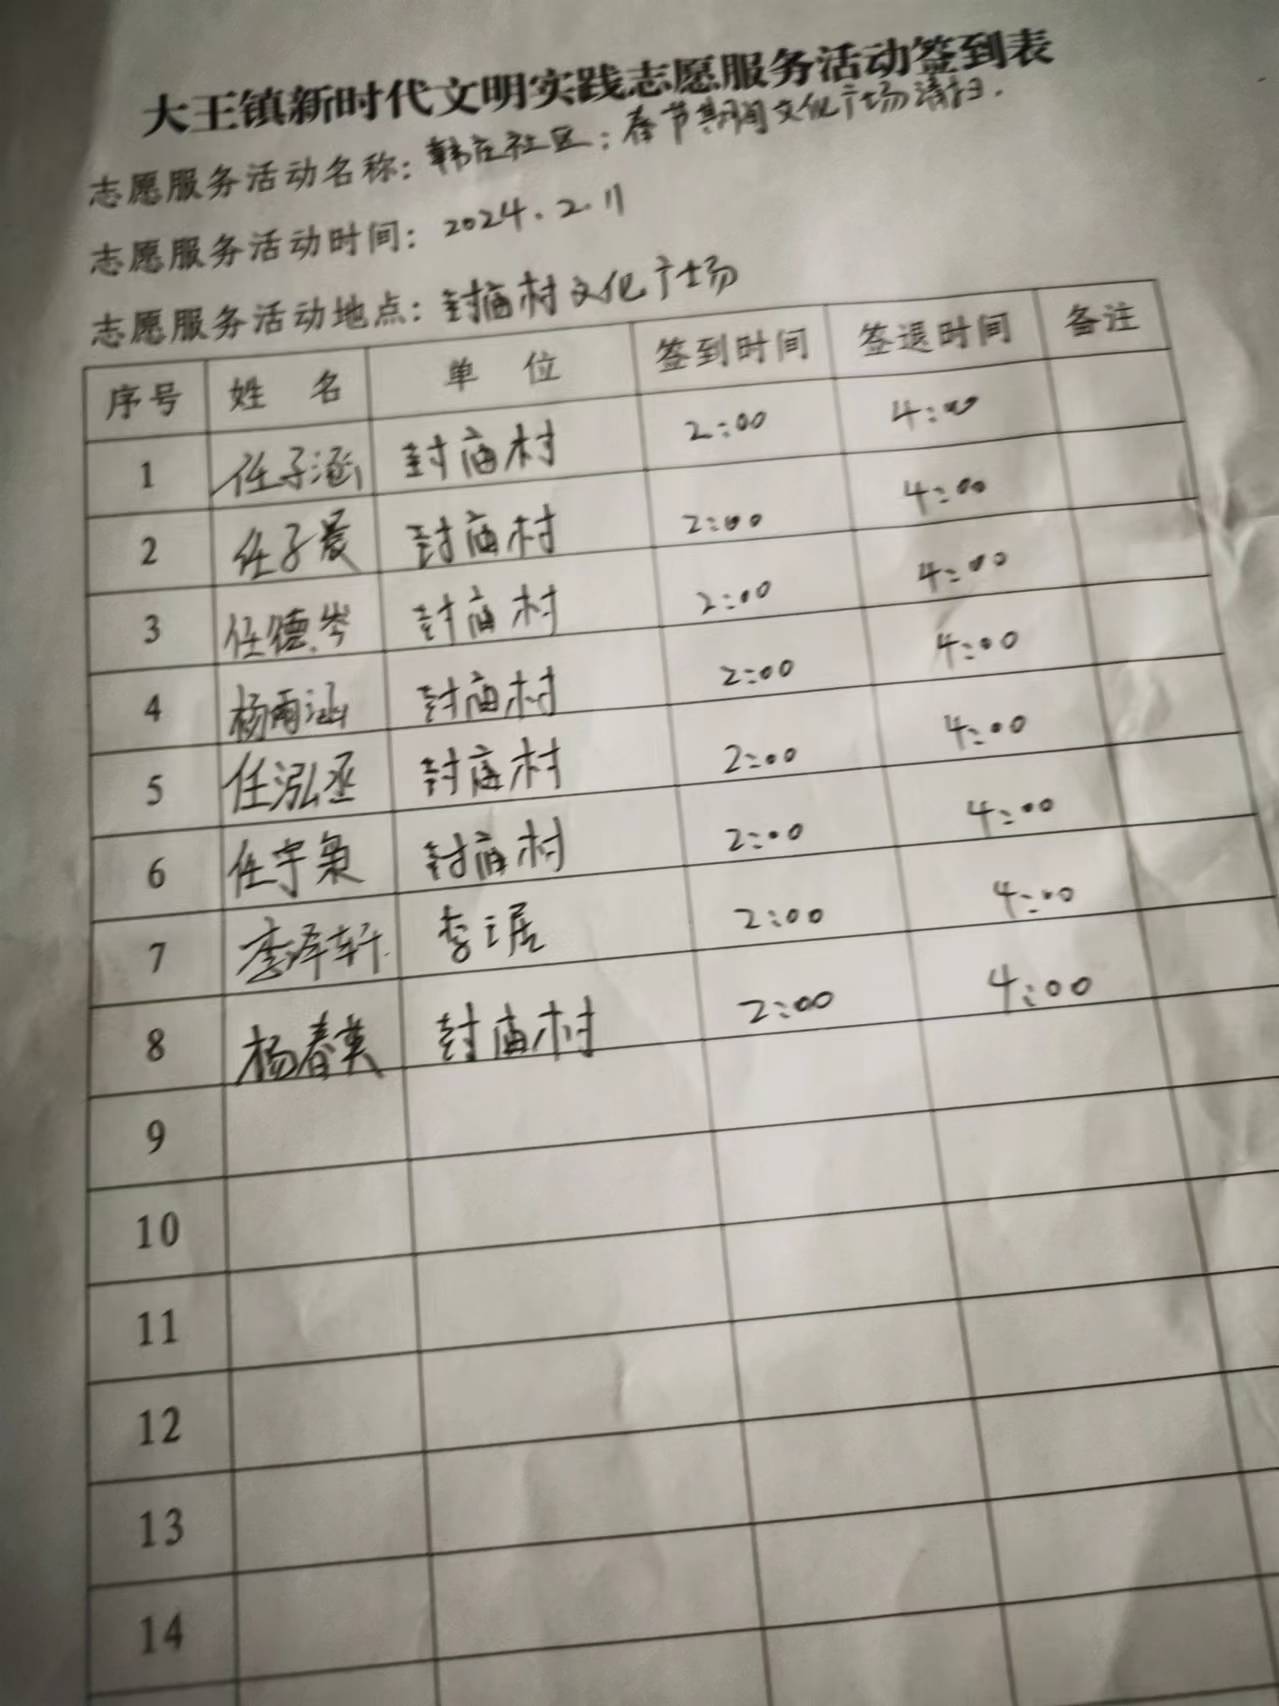 大王镇新时代文明实践志愿服务活动签到表
志愿服务活动名称：韩庄社区：春节期间文化广场清扫.
志愿服务活动时间：2024.2.11
志愿服务活动地点：封庙村文化广场
序号 姓名 单位 签到时间 签退时间 备注
1 任子涵 封庙村 2:00 4:00
2 任子晨 封庙村 2:00 4:00
3 任德岑 封庙村 2:00 4:00
4 杨雨涵 封庙村 2:00 4:00
5 任泓丞 封庙村 2:00 4:00
6 任宇枭 封庙村 2:00 4:00
7 李泽轩 李 2:00 4:00
8 杨春英 封庙村 2:00 4:00
9
10
11
12
13
14